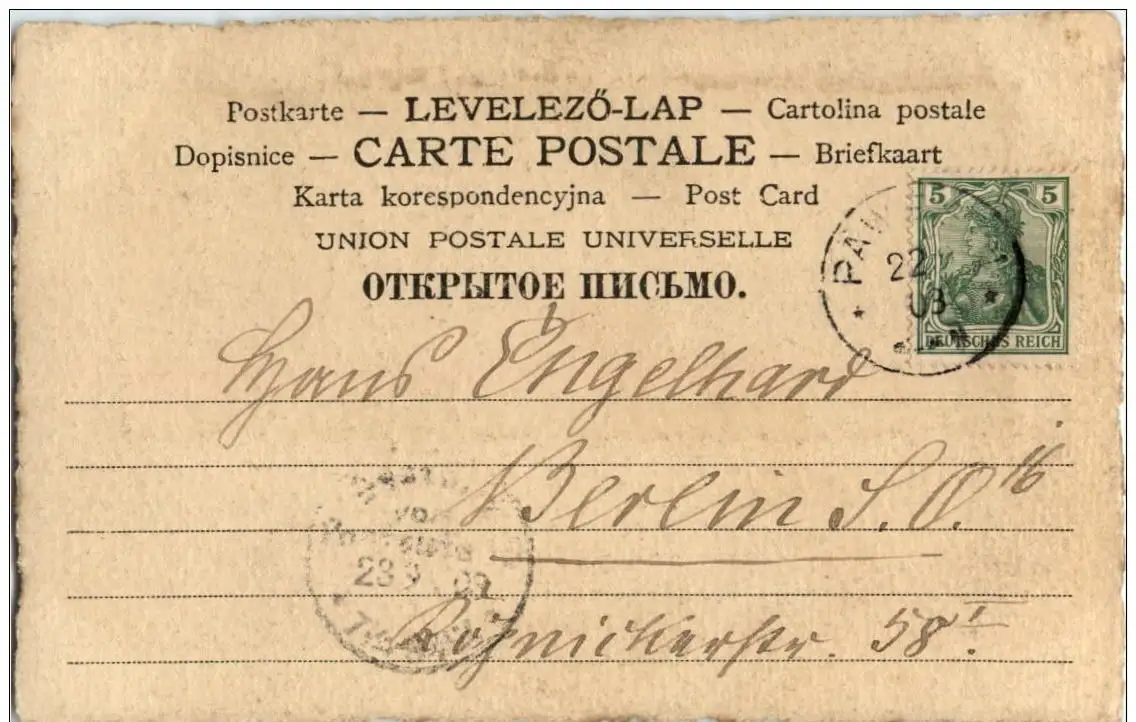 Postkarte — LEVELEZŐ-LAP — Cartolina postale
Dopisnice — CARTE POSTALE — Briefkaart
Karta korespondencyjna — Post Card
UNION POSTALE UNIVERSELLE
ОТКРЫТОЕ ПИСЬМО.
5 5
DEUTSCHES REICH
22
03
Hans Engelhard
Berlin S.O. 16
23 9
Köpnickerstr. 58 I.